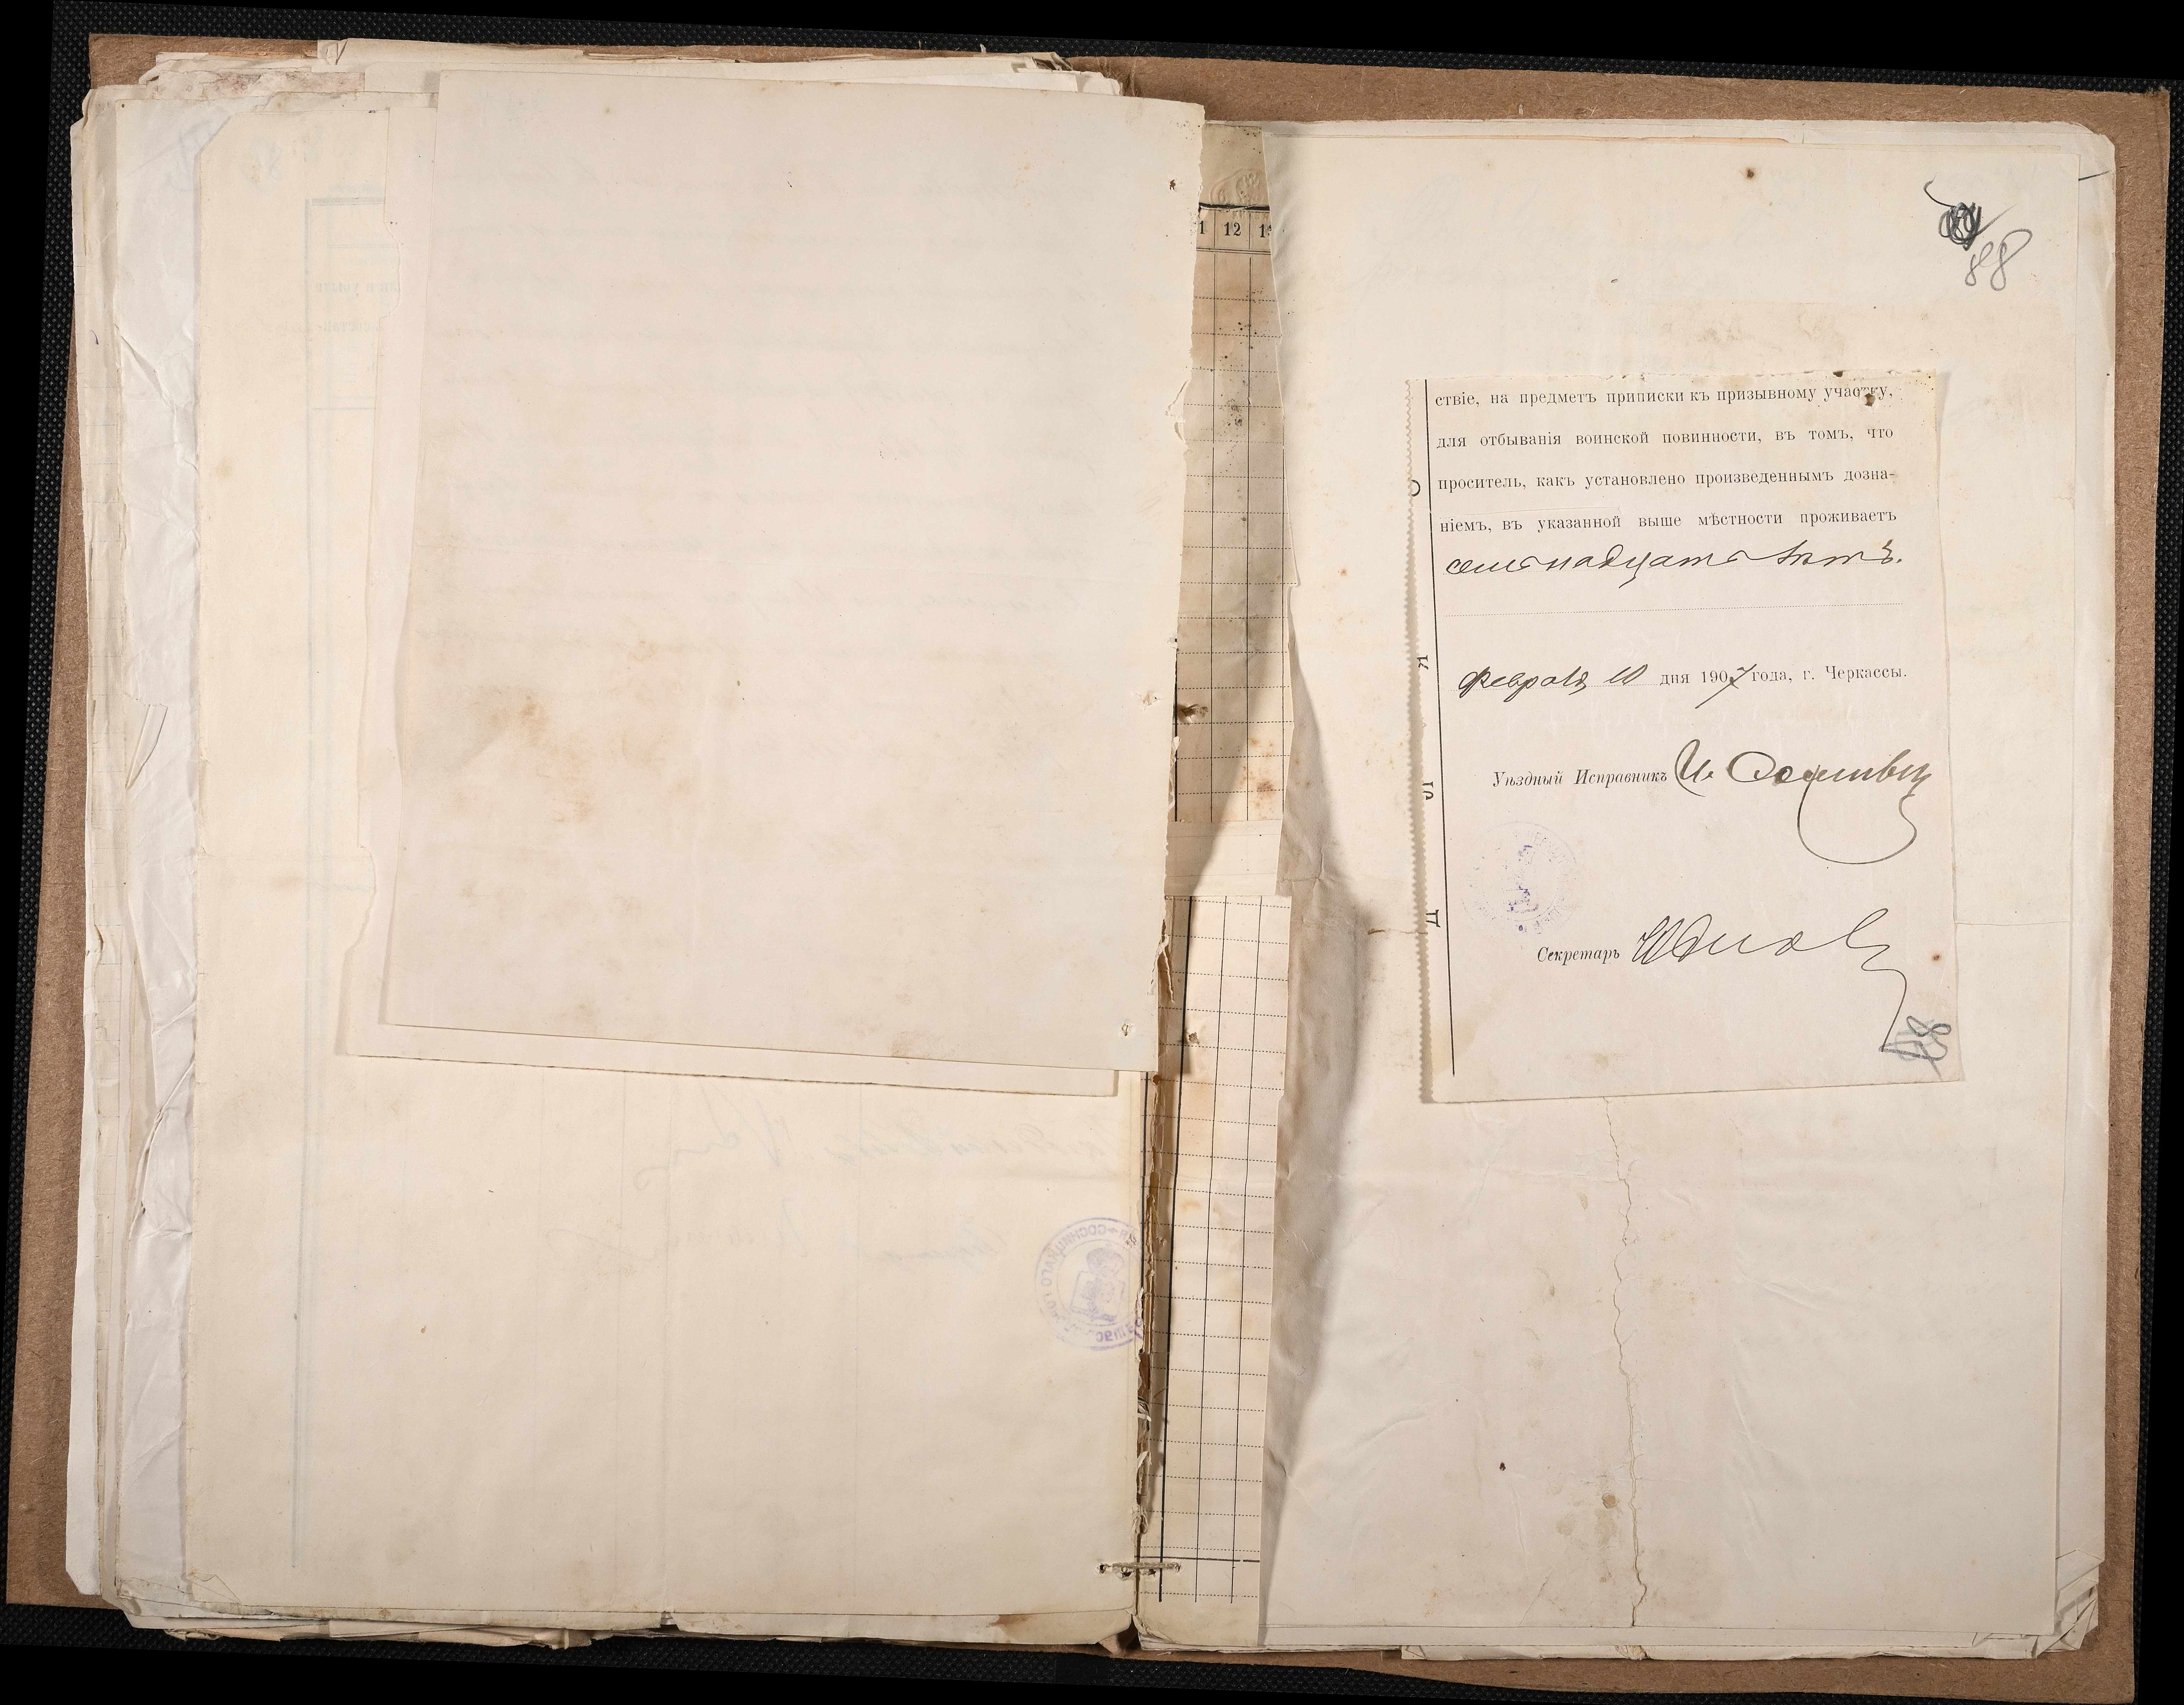 1 12 1
88
ствіе, на предметъ приписки къ призывному участку,
для отбыванія воинской повинности, въ томъ, что
проситель, какъ установлено произведеннымъ дозна-
ніемъ, въ указанной выше мѣстности проживаетъ
семьнадцать лѣтъ.
Февраля 10 дня 1907 года, г. Черкассы.
Уѣздный Исправникъ И.
Секретарь